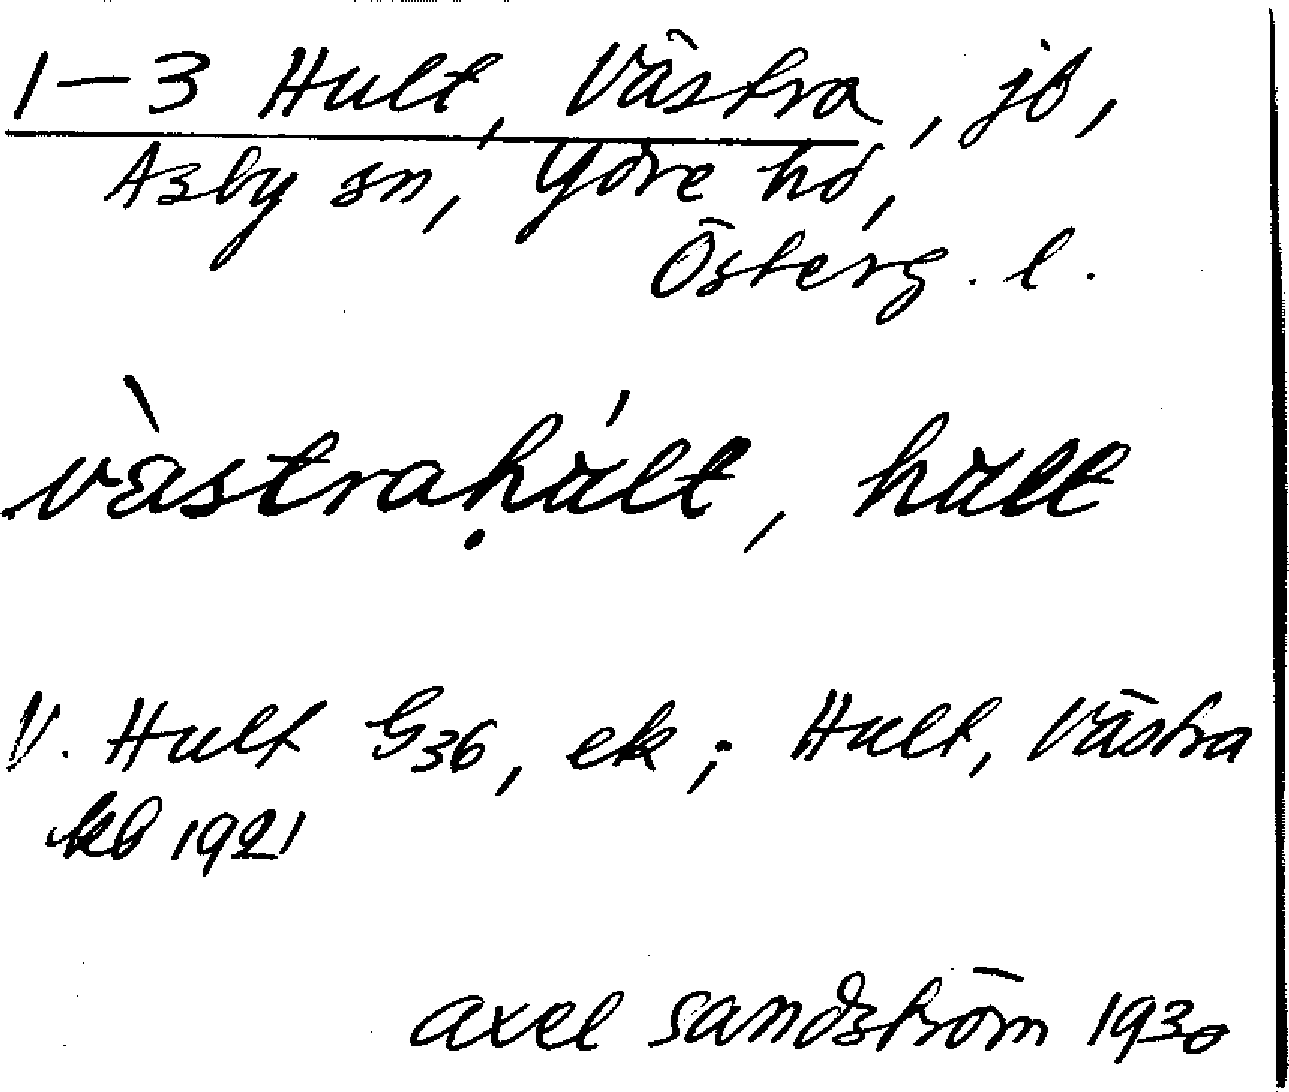 1-3 Hult, Västra, jb,
Asby sn, Ydre hd,
Österg. l.
vàstrahúlt, hult
V. Hult G36, ek; Hult, Västra
kb 1921
axel sandström 1930